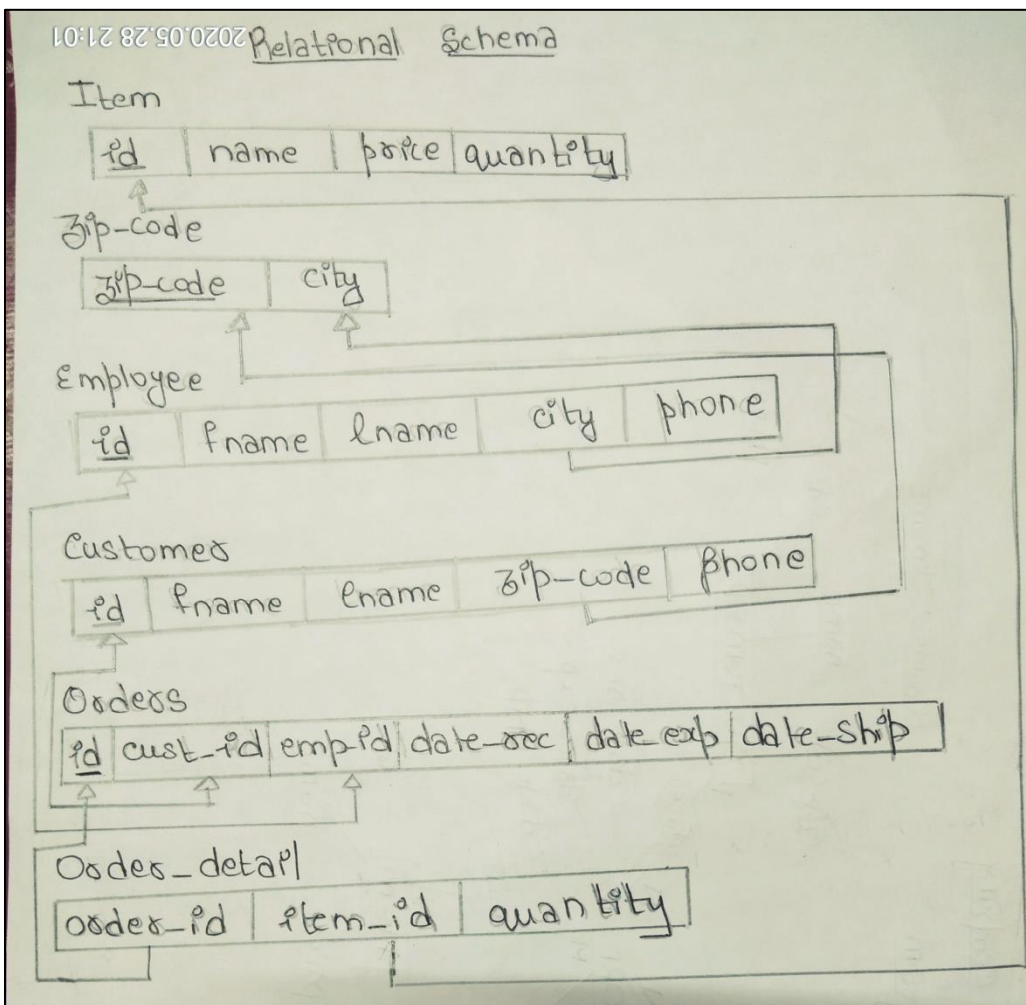 2020.05.28 21:01
Relational Schema
Item
id name price quantity
Zip-code
zip-code city
Employee
id fname lname city phone
Customer
id fname lname zip-code phone
Orders
id cust_id emp_id date_rec date_exp date_ship
Order_detail
order_id item_id quantity